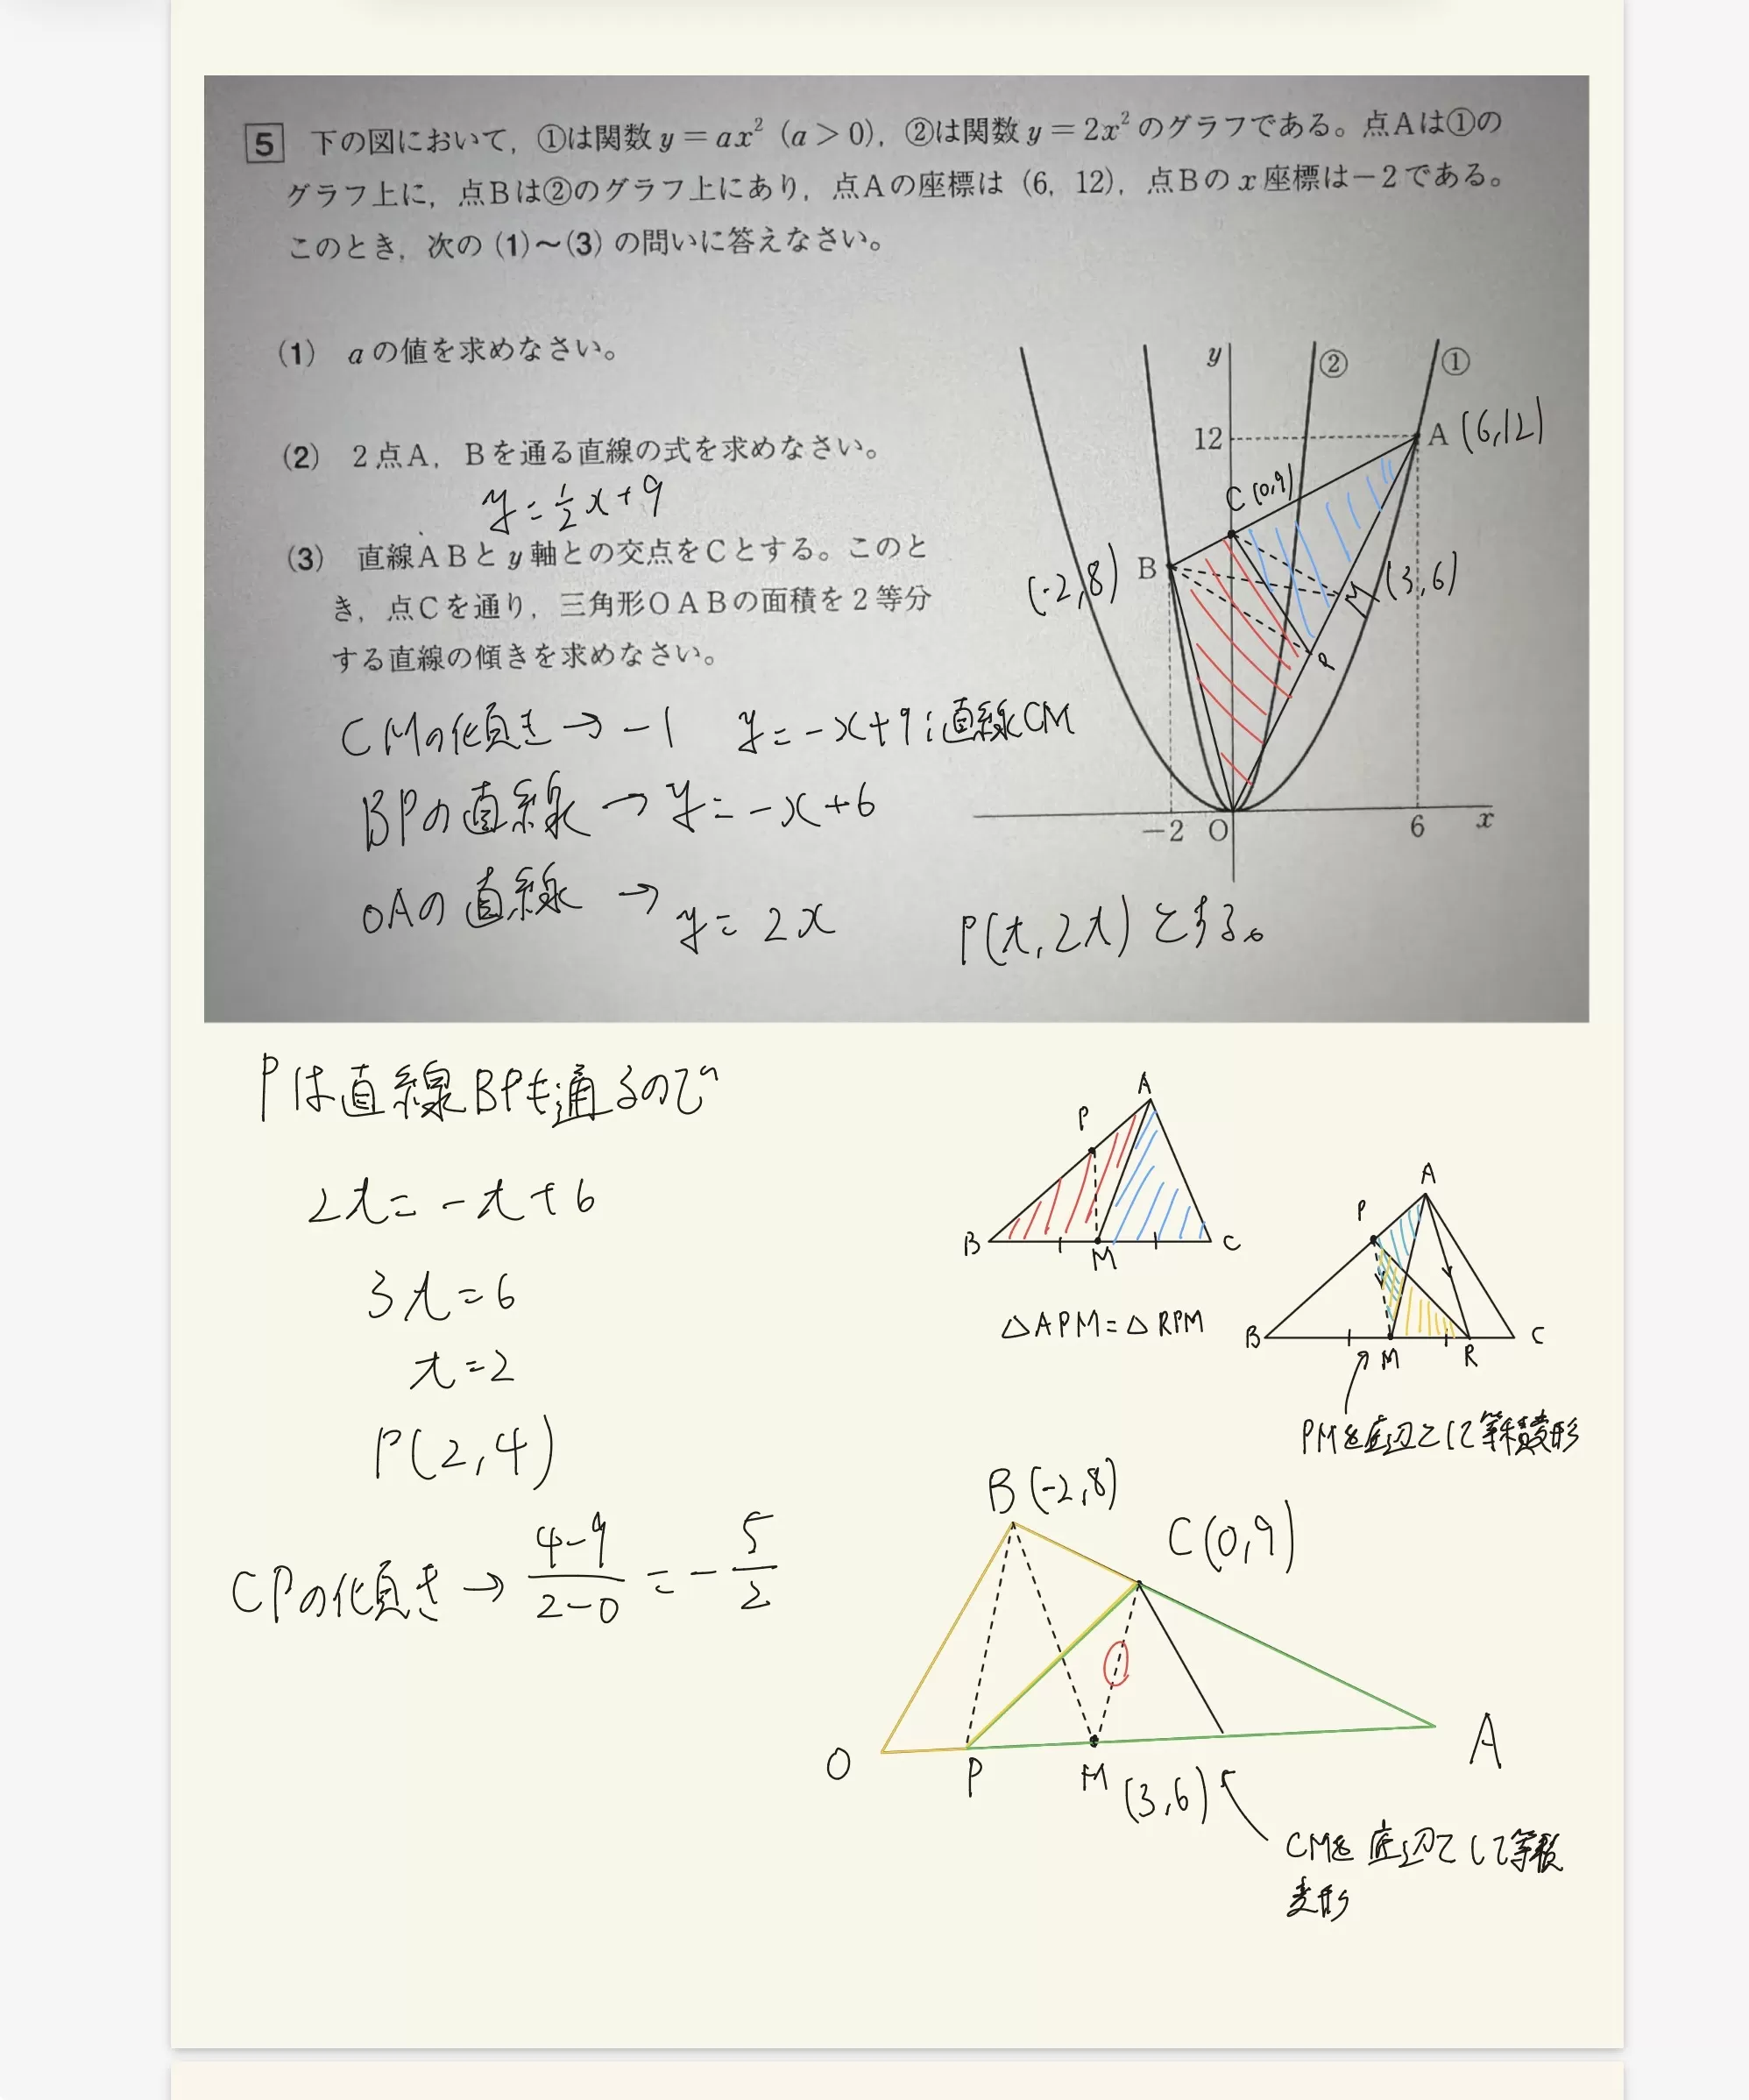 5 下の図において，①は関数 y = ax² (a > 0)，②は関数 y = 2x² のグラフである。点Aは①の
グラフ上に，点Bは②のグラフ上にあり，点Aの座標は (6, 12)，点Bの x 座標は−2である。
このとき，次の (1)～(3) の問いに答えなさい。
(1) a の値を求めなさい。
(2) 2点A，Bを通る直線の式を求めなさい。
y = 1/2 x + 9
(3) 直線ABと y 軸との交点をCとする。このと
き，点Cを通り，三角形OABの面積を2等分
する直線の傾きを求めなさい。
y
②
①
12
A (6,12)
C (0,9)
(-2,8) B
M (3,6)
P
−2 O 6 x
CMの傾き → −1 y = −x+9 : 直線CM
BPの直線 → y = −x+6
OAの直線 → y = 2x
P(t, 2t) とする。
Pは直線BPも通るので
2t = −t + 6
3t = 6
t = 2
P(2,4)
CPの傾き → 4−9/2−0 = −5/2
A
P
B M C
△APM = △RPM
A
P
B M R C
PMを底辺として等積変形
B (-2,8)
C (0,9)
O P M (3,6) A
CMを底辺として等積
変形